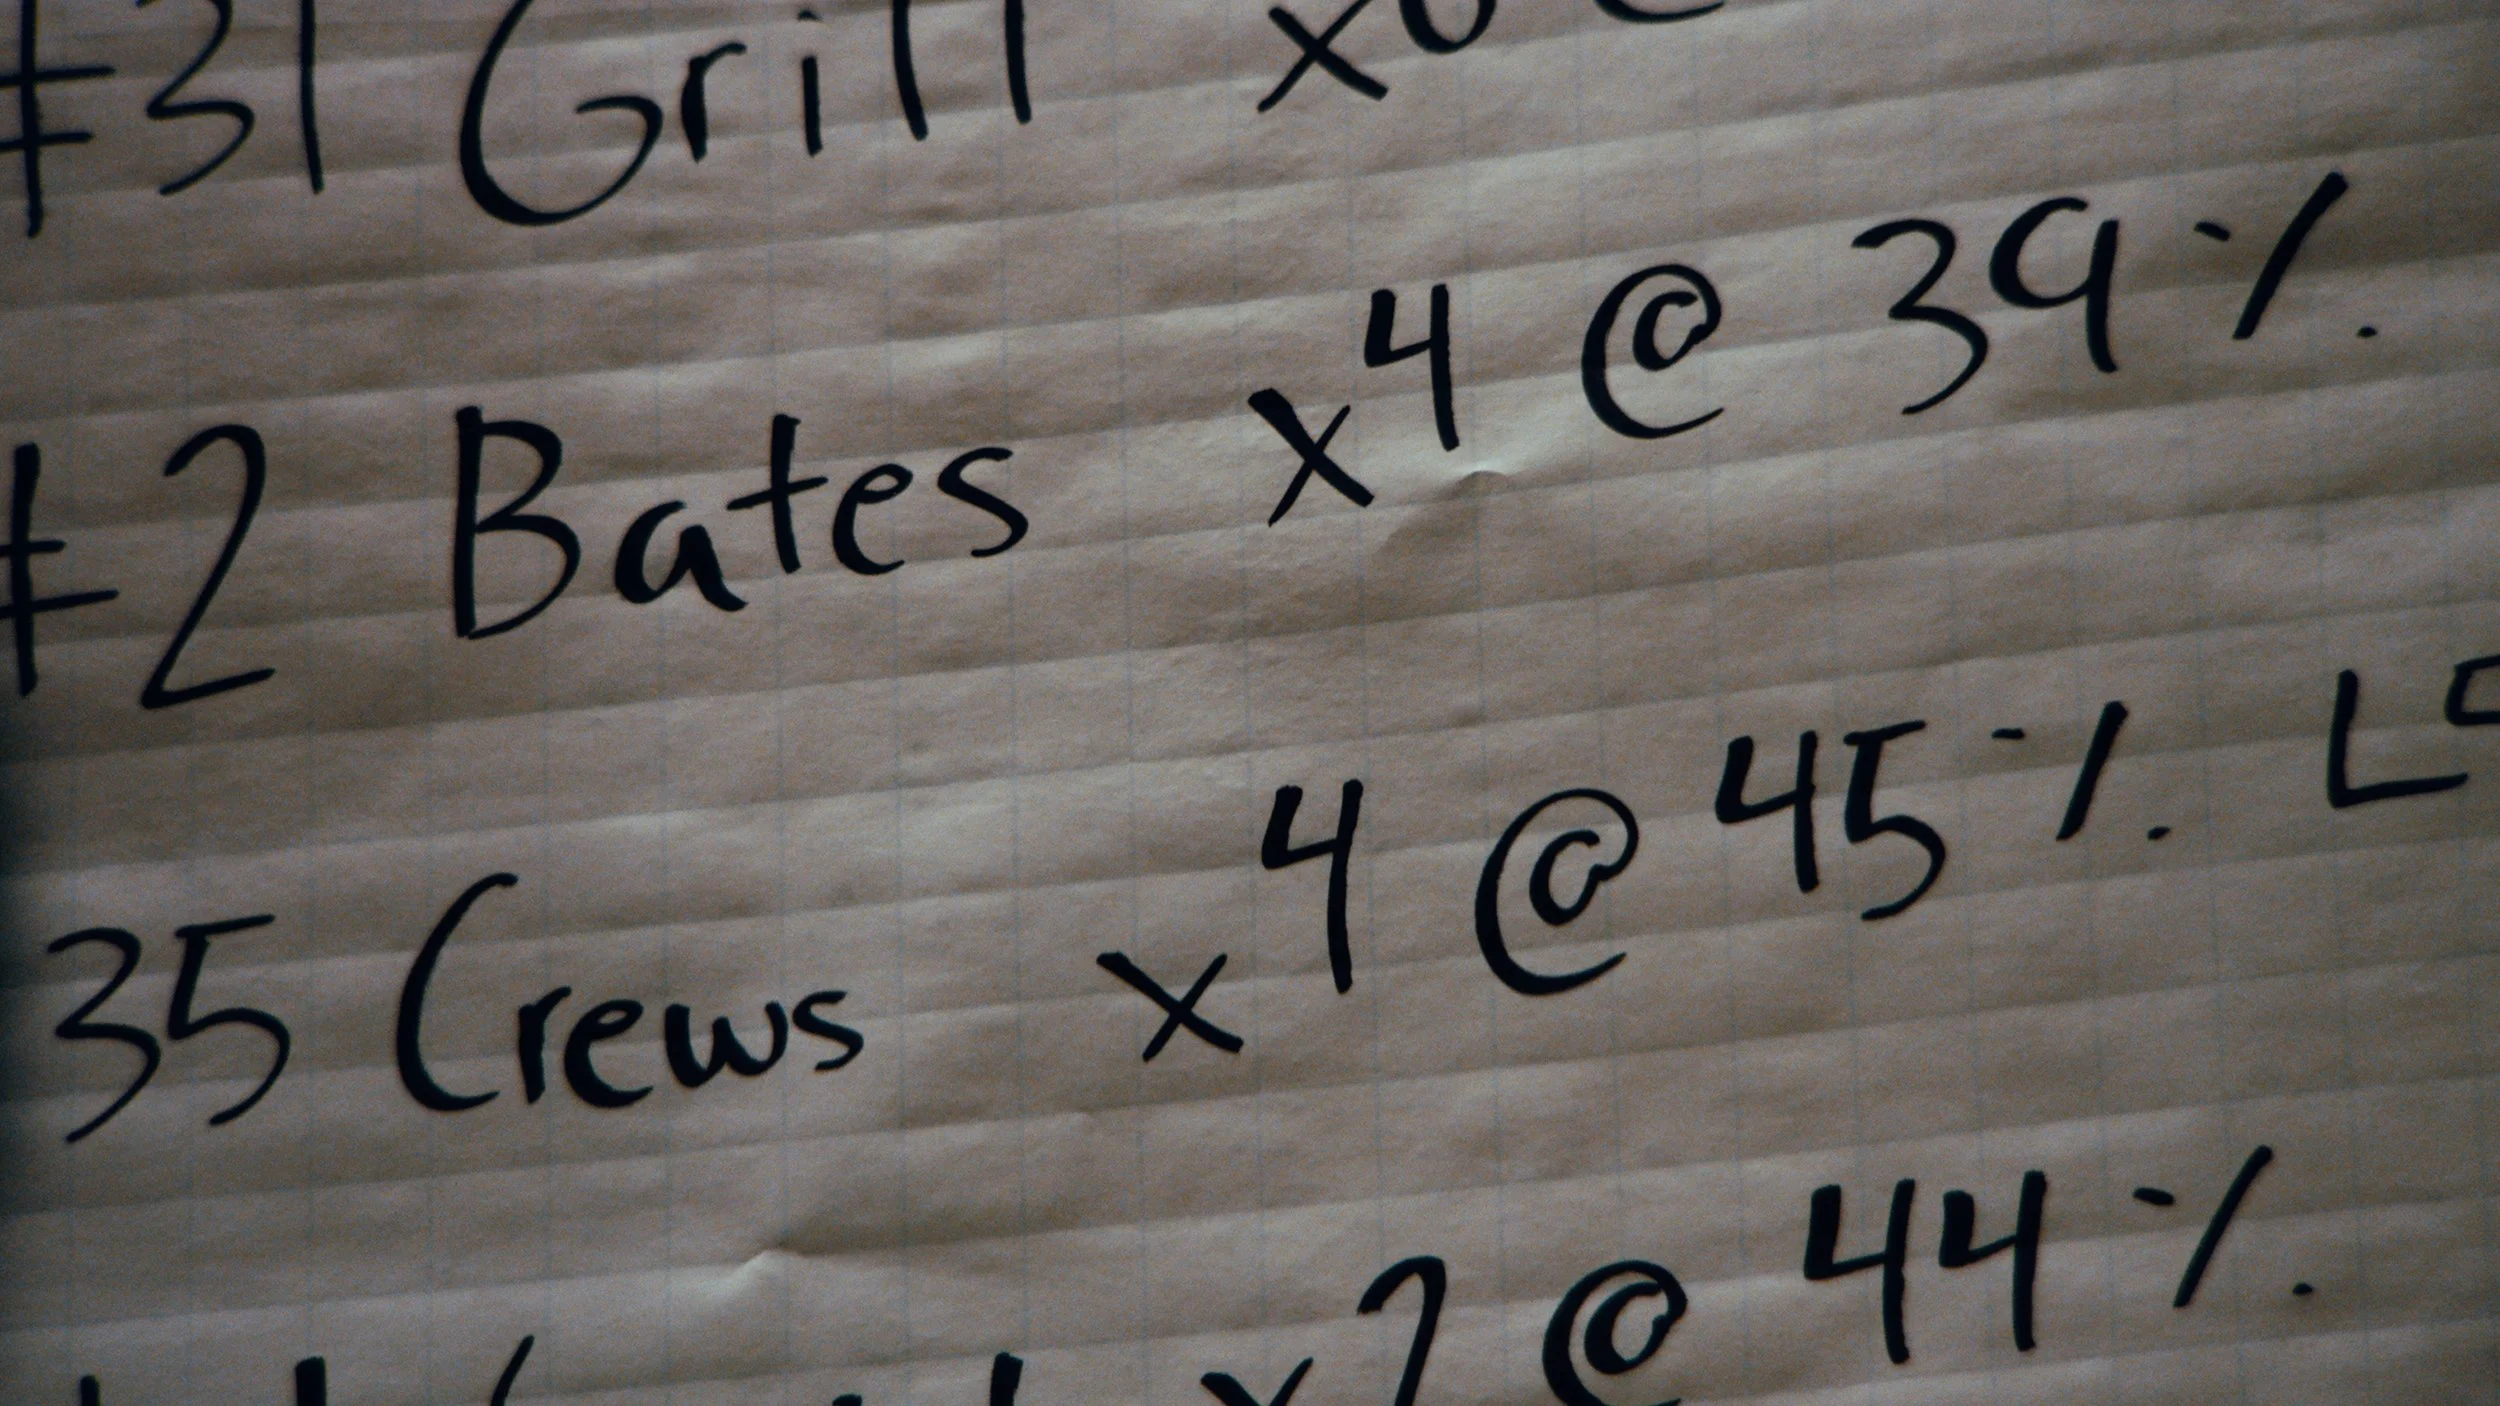 #31 Grill x
#2 Bates x4 @ 39%
35 Crews x4 @ 45%
x2 @ 44%